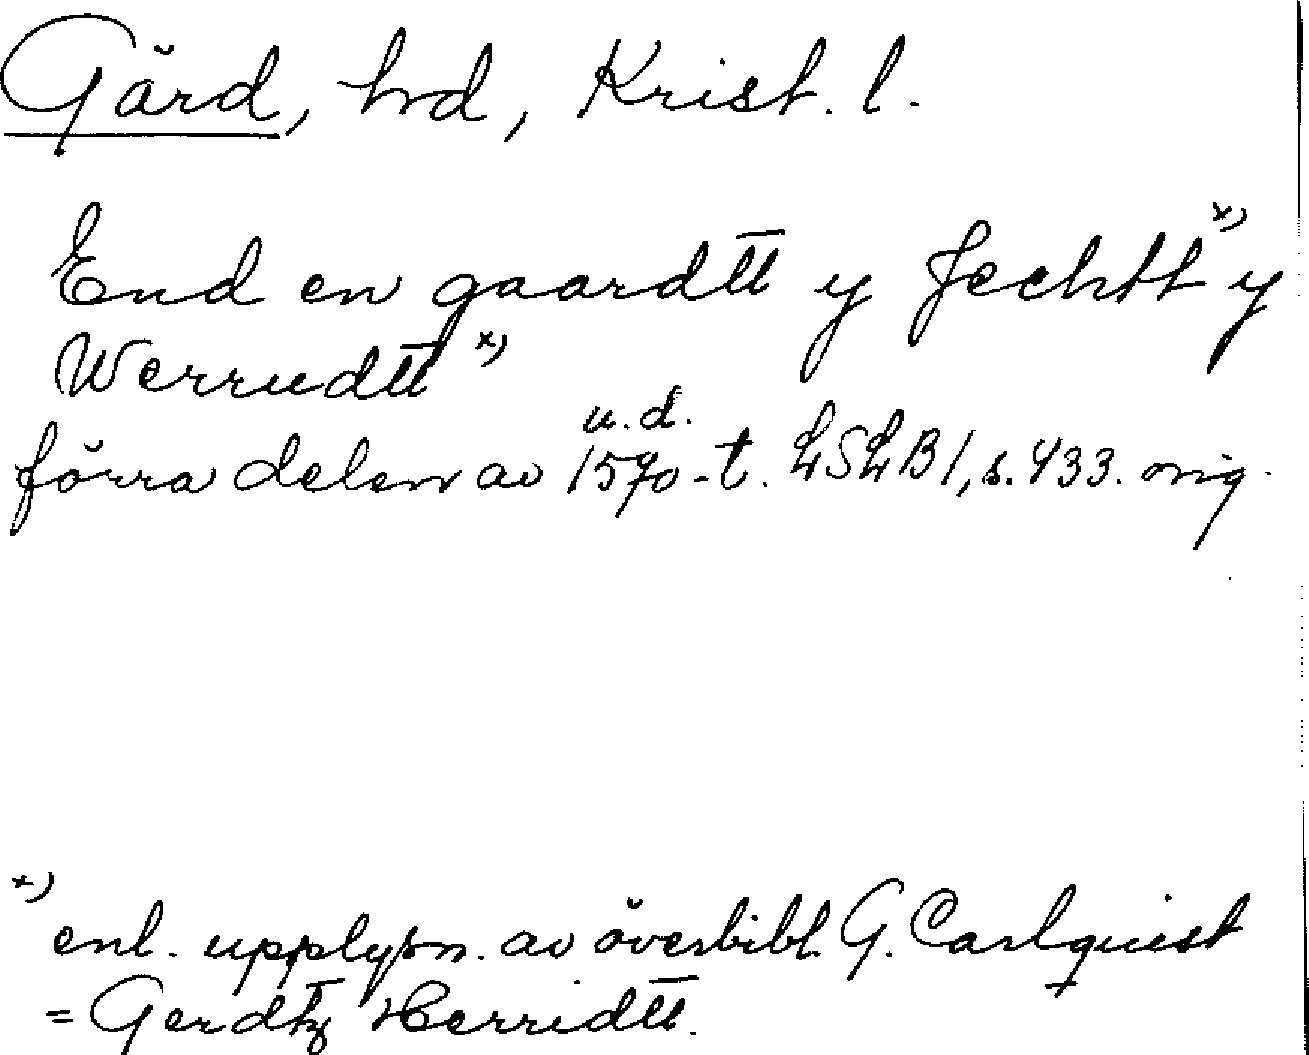 Gärd, hrd, Krist. l.
End en gaardtt y Jechtt x) y
Werrudtt x)
u. d.
förra delen av 1570-t. LSLB1, s. 433. orig.
x)
enl. upplysn. av överbibl. G. Carlquist
= Gerdtz Herridtt.